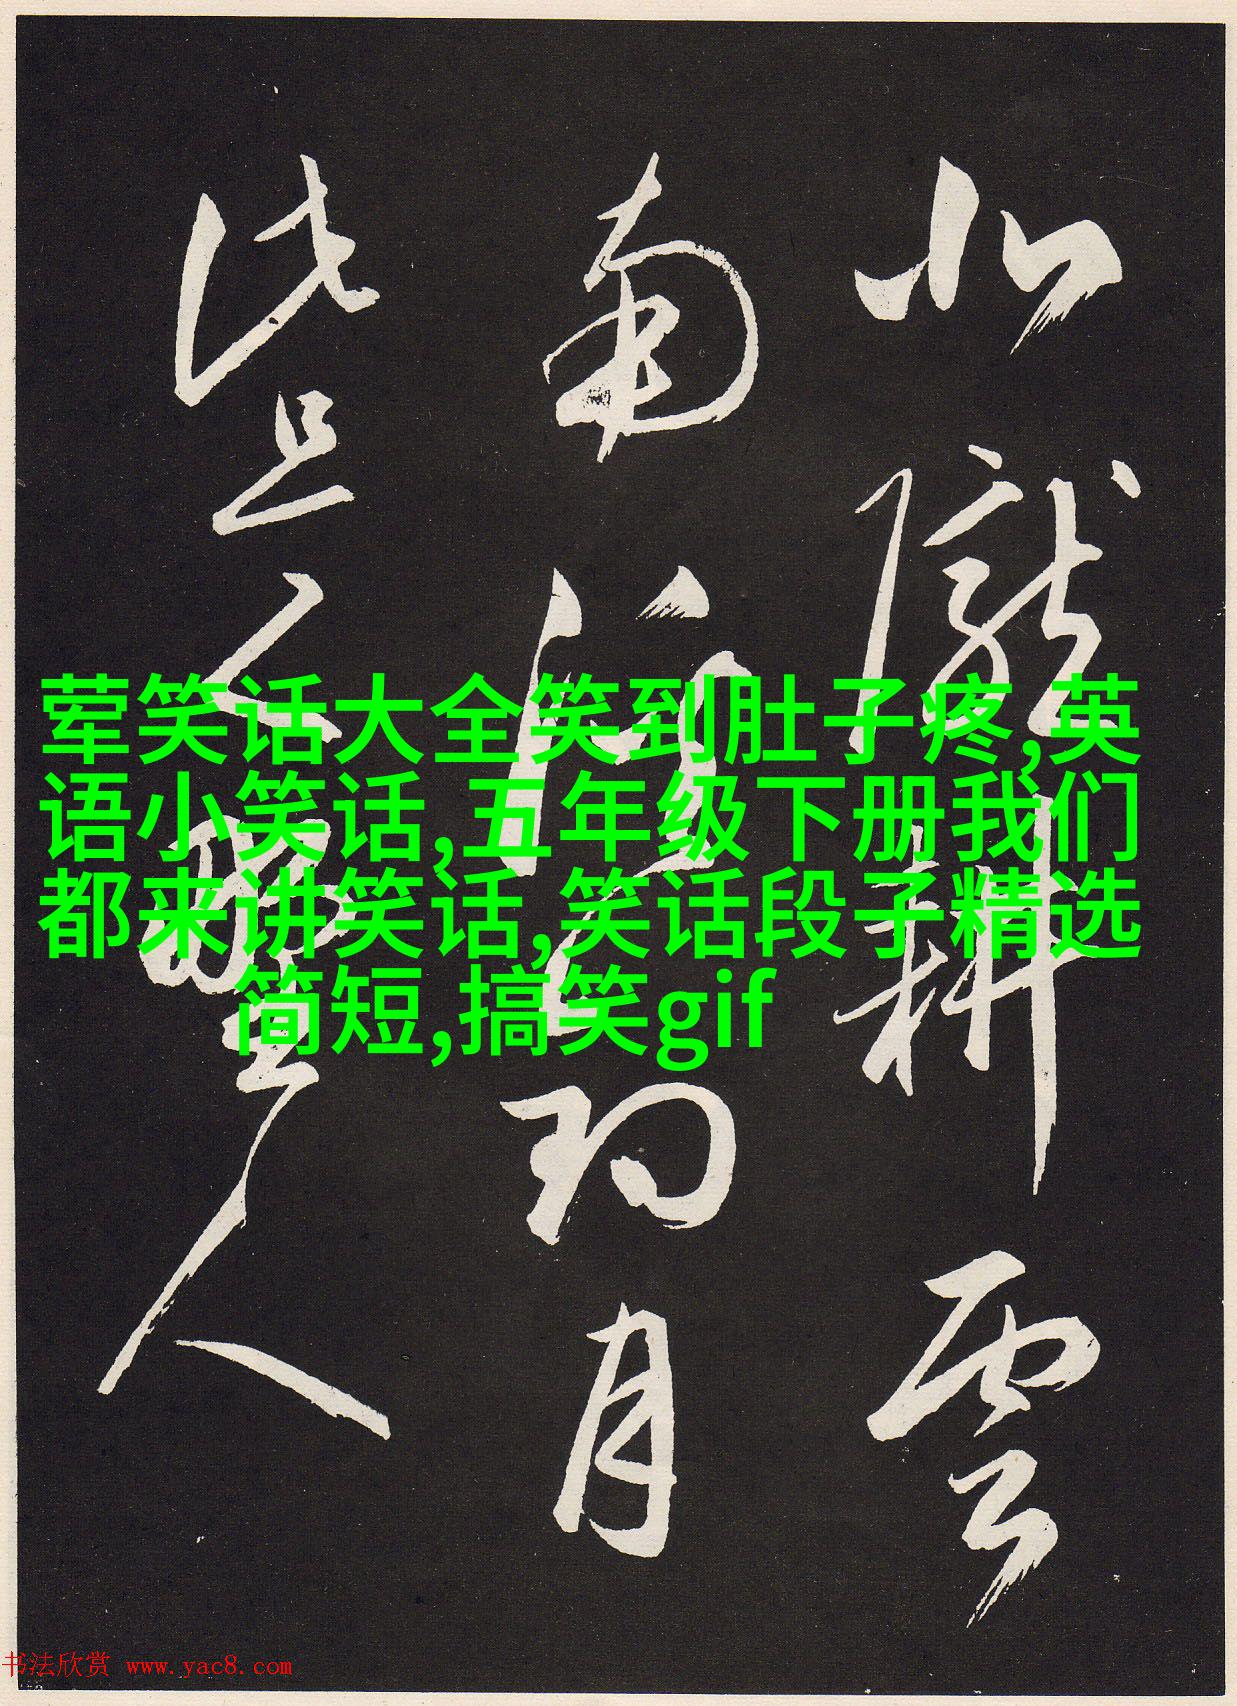 北隴耕雲
南溪釣月
此是野人
荤笑话大全笑到肚子疼,英
语小笑话,五年级下册我们
都来讲笑话,笑话段子精选
简短,搞笑gif
书法欣赏 www.yac8.com